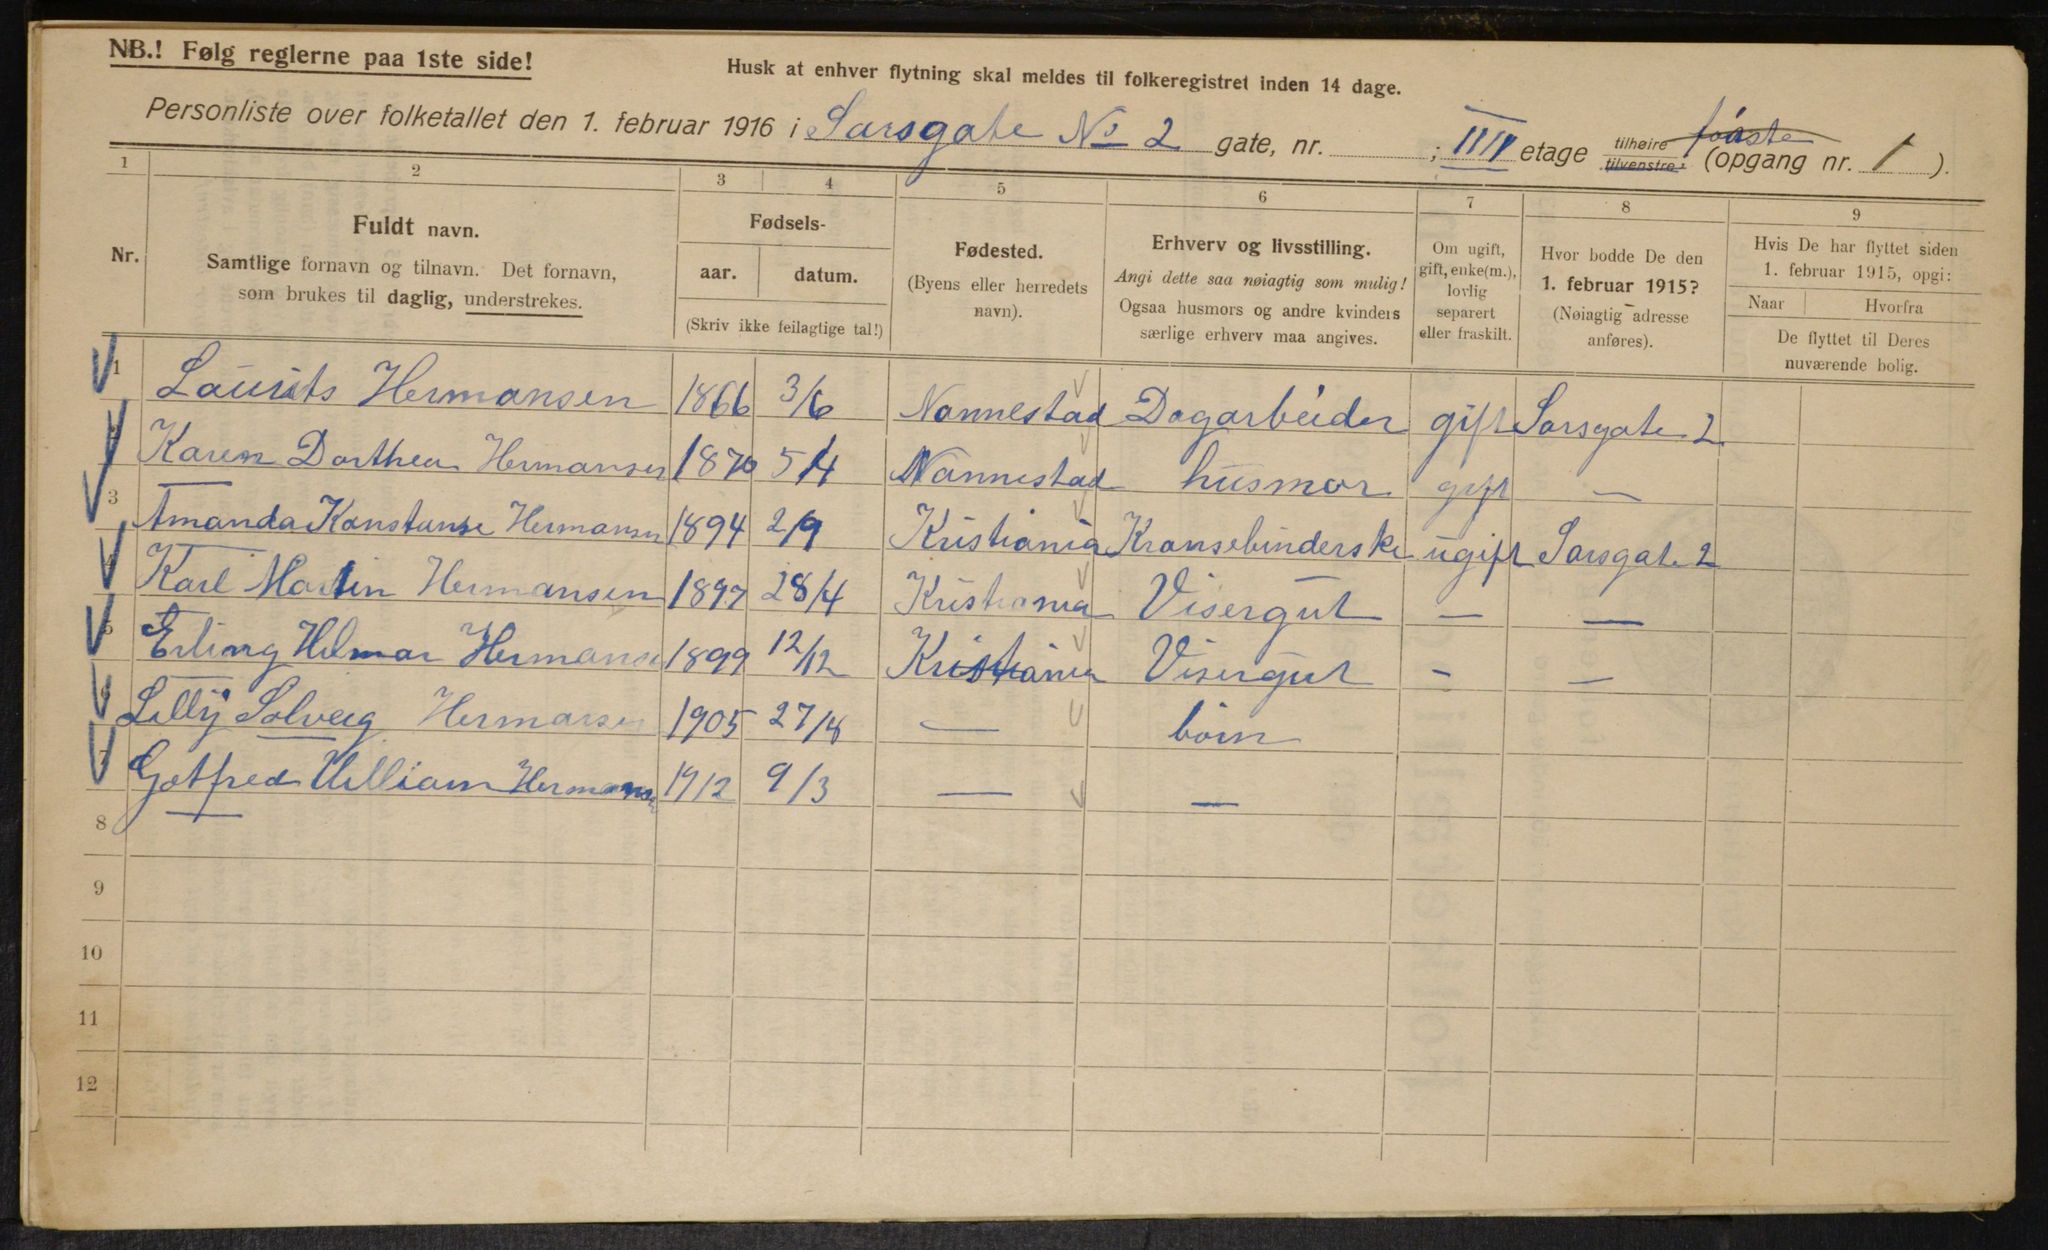 NB.! Følg reglerne paa 1ste side!
Husk at enhver flytning skal meldes til folkeregistret inden 14 dage.
Personliste over folketallet den 1. februar 1916 i Sarsgate No 2 gate, nr. ; III etage tilhøire tilvenstre (opgang nr. 1 ).
1 2 3 4 5 6 7 8 9
Nr.
Fuldt navn.
Samtlige fornavn og tilnavn. Det fornavn,
som brukes til daglig, understrekes.
Fødsels-
aar. datum.
(Skriv ikke feilagtige tal!)
Fødested.
(Byens eller herredets
navn).
Erhverv og livsstilling.
Angi dette saa nøiagtig som mulig!
Ogsaa husmors og andre kvinders
særlige erhverv maa angives.
Om ugift,
gift, enke(m.),
lovlig
separert
eller fraskilt.
Hvor bodde De den
1. februar 1915?
(Nøiagtig adresse
anføres).
Hvis De har flyttet siden
1. februar 1915, opgi:
Naar Hvorfra
De flyttet til Deres
nuværende bolig.
1 Laurits Hermansen 1866 3/6 Nannestad Dagarbeider gift Sarsgate 2
Karen Dorthea Hermansen 1870 5/4 Nannestad husmor gift —
3 Amanda Konstanse Hermansen 1894 2/9 Kristiania Kransebinderske ugift Sarsgate 2
Karl Martin Hermansen 1897 28/4 Kristiania Visergut — —
5 Erling Hilmar Hermansen 1899 12/12 Kristiania Visergut - —
6 Lilly Solveig Hermansen 1905 27/8 — børn
7 Gotfred William Hermansen 1912 9/3 — —
8
9
10
11
12